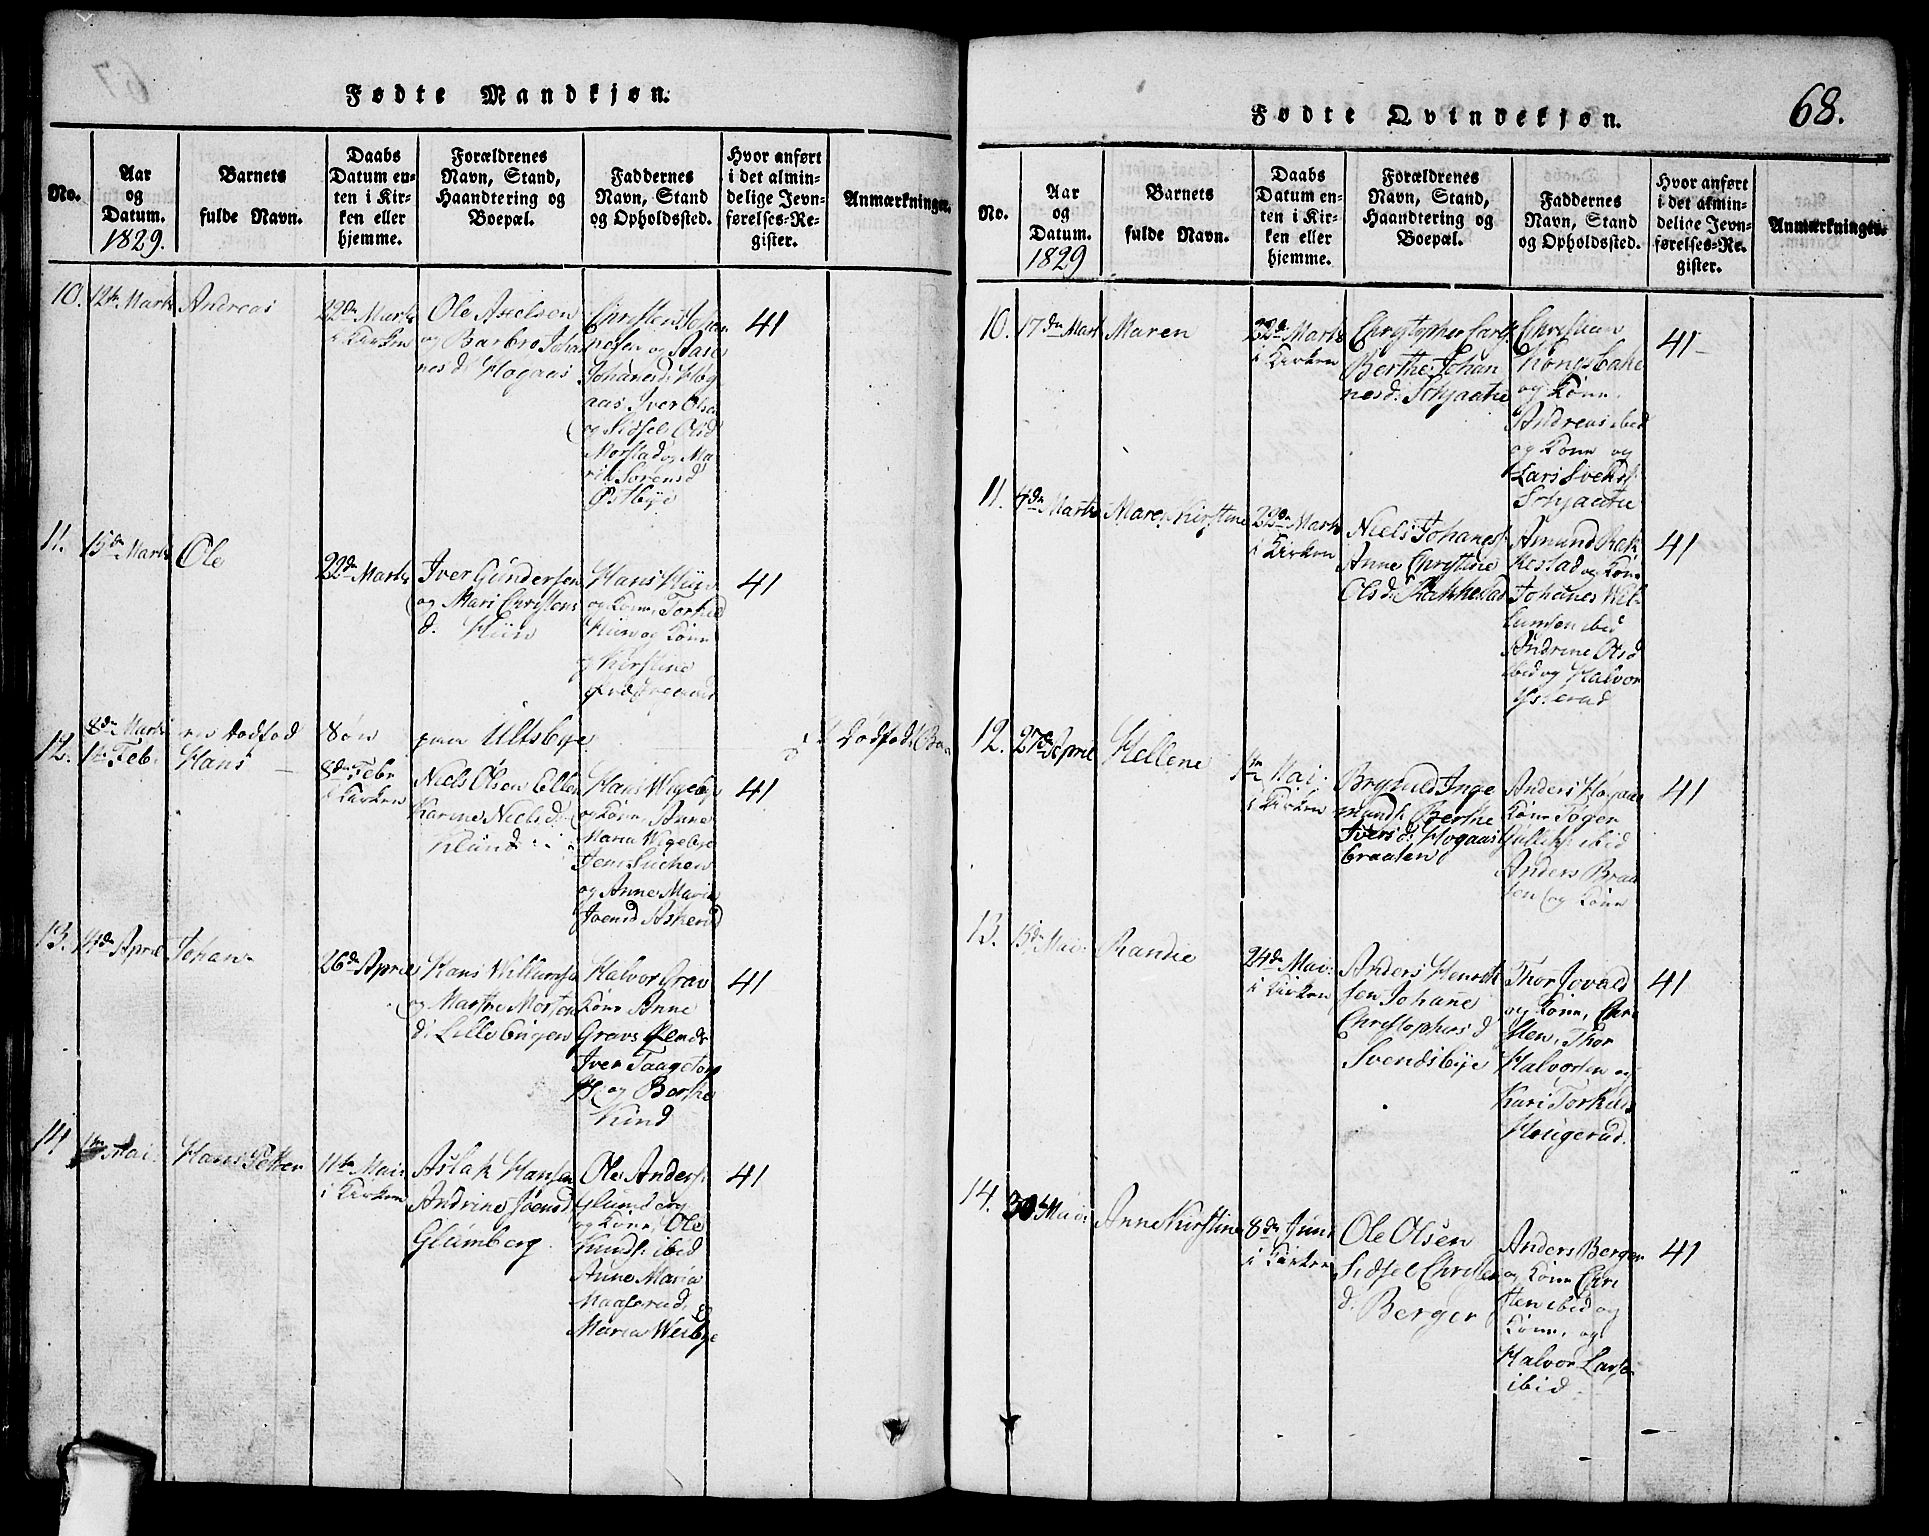 Fødte Mandkjøn.
No.
Aar
og
Datum.
1829.
Barnets
fulde Navn.
Daabs
Datum en-
ten i Kir-
ken eller
hjemme.
Forældrenes
Navn, Stand,
Haandtering og
Boepæl.
Faddernes
Navn, Stand
og Opholdssted.
Hvor anført
i det almin-
delige Jevn-
førelses-Re-
gister.
Anmærkninger.
10.
12te Marts
Andreas
22de Marts
i Kirken
Ole Axelsen
og Barbro Johan
nesd. Hogaas
Christen Johan
nesen og
Johanesd. Høg
aas Iver Olsen
og Sidsel Olsd
Morstad og Ma
ri Sørensd
Østbye
41
11.
15de Marts
Ole
22de Marts
Iver Gundersen
og Mari Christens
d. Hun
Hans Huus
og Kone, Torkild
Huus og Kone
og Kirstine
41
8de Marts
Dødfød
Søn
paa Ultsbye
Dødfødt
12.
1te Feb.
Hans
8de Febr
i Kirken
Niels Olsen Ellen
Karine Nielsd.
Klund
Hans Wigebye
og Kone, Anne
Maria Wigebye
Jens
og Anne Maria
Joensd Askerud
41
13.
14de April
Johan
26de April
Hans Willumsen
og Marthe Morten
d. Lille Engen
Halvor Grav
Kone Anne
Gravs
Iver Taagetorp
og Berthe
Kind
41
14
1te Mai.
Hans Petter
11te Mai
i Kirken
Aslak Hansen
Andrine Joensd
Glumberg
Ole Anders.
Glumberg
og Kone, Ole
Knuds. ibid
Anne Maria
Maaserud,
Maria Weibye
41
Fødte Qvindekjøn.
68.
No.
Aar
og
Datum.
1829
Barnets
fulde Navn.
Daabs
Datum en-
ten i Kir-
ken eller
hjemme.
Forældrenes
Navn, Stand,
Haandtering og
Boepæl.
Faddernes
Navn, Stand
og Opholdssted.
Hvor anført
i det almin-
delige Jevn-
førelses-Re-
gister.
Anmærkninger.
10.
17de Marts
Maren
22de Marts
i Kirken
Christopher Carls.
Berthe Johan
nesd. Schjaatie
Christian
Kongsbakke
og Kone,
Andreas ibid
og Kone og
Lars Svends.
Schjaatie
41
11.
4de Marts
Maren Kirstine
22de Marts
i Kirken
Niels Johanes.
Anne Christine
Olsd. Rakkestad
Amund Rak
kestad og Kone
Johanes Wil-
lumsen ibid
Andrine Olsd
ibid og Halvor
Ysterud
41
12.
27de April
Hellene
i Kirken
Brynild Inge
munds. Berthe
Iversd. Hogaas
braaten
Anders Høgaas
Kone Roger
Gulliks. ibid
Anders Braa
ten og Kone
41
13.
13de Mai.
Randie
24de Mai.
i Kirken
Anders Henrik
sen Johane
Christophersd
Svendsbye
Thor Jovald
og Kone, Chri
sten, Thor
Halvorsen og
Kari Torkilds
Hougerud.
41
14.
30te Mai.
Anne Kirstine
8de Juni
i Kirken
Ole Olsen
Sidsel Christen
d. Berger
Anders Berger
og Kone Chri
sten ibid og
Kone, og
Halvor Larsen
ibid.
41